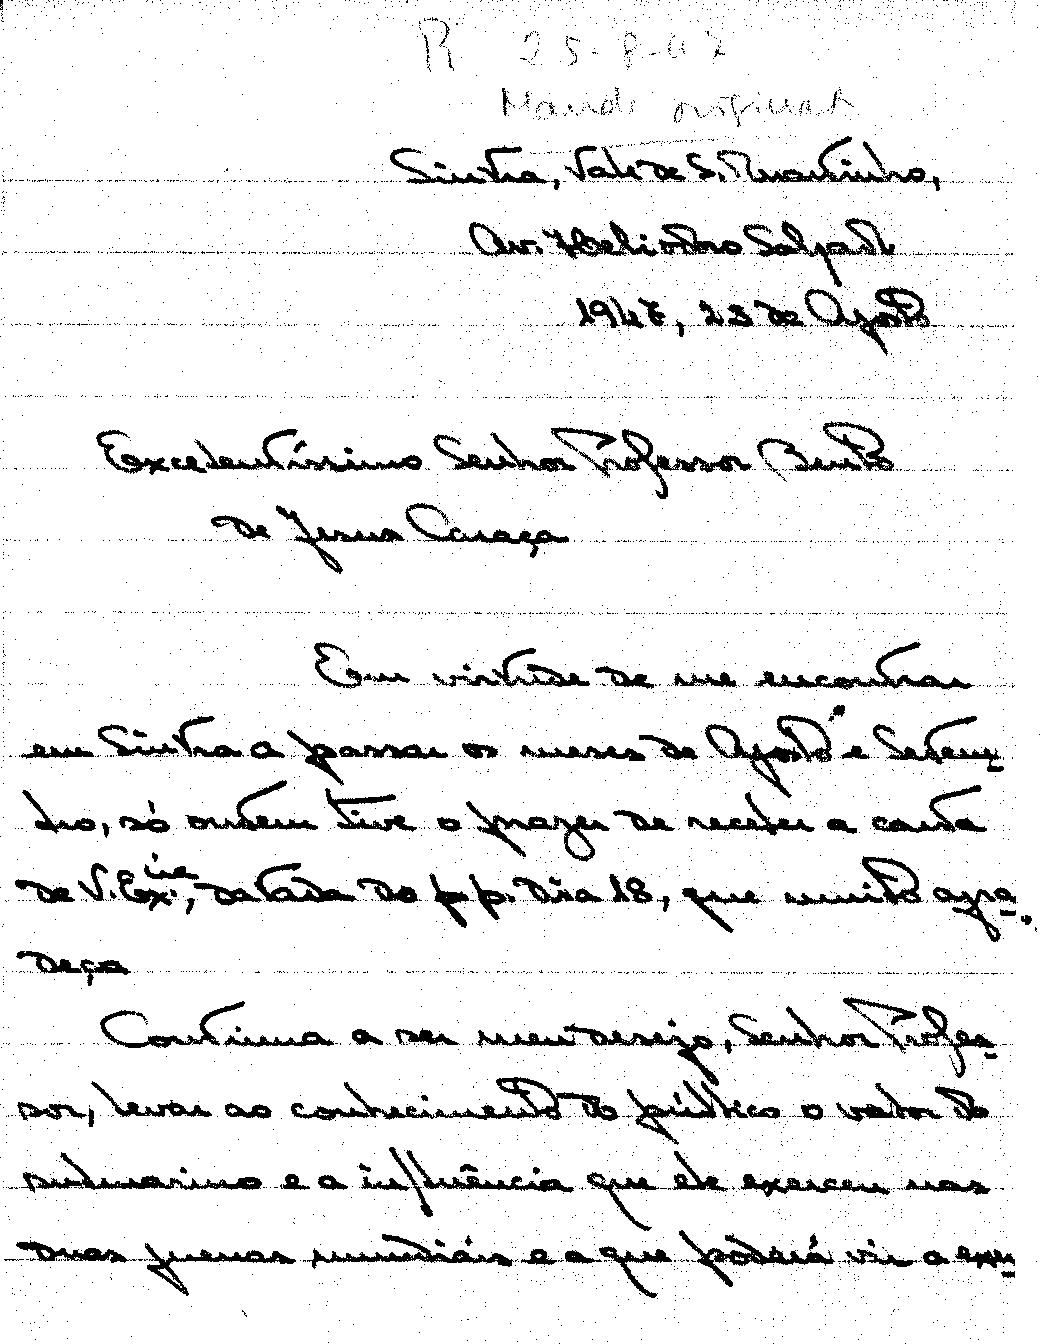 R 25-8-47
Mande original
Sintra, Vale de S. Martinho,
Av. Heliodoro Salgado
1947, 23 de Agosto
Excelentíssimo Senhor Professor Bento
de Jesus Caraça
Em virtude de me encontrar
em Sintra a passar os meses de Agosto e Setem-
bro, só ontem tive o prazer de receber a carta
de V. Ex.ia, datada do p.p. dia 18, que muito agra-
deço
Continua a ser meu desejo, Senhor Profes-
sor, levar ao conhecimento do público o valor do
submarino e a influência que ele exerceu nas
duas guerras mundiais e a que poderá vir a exer-